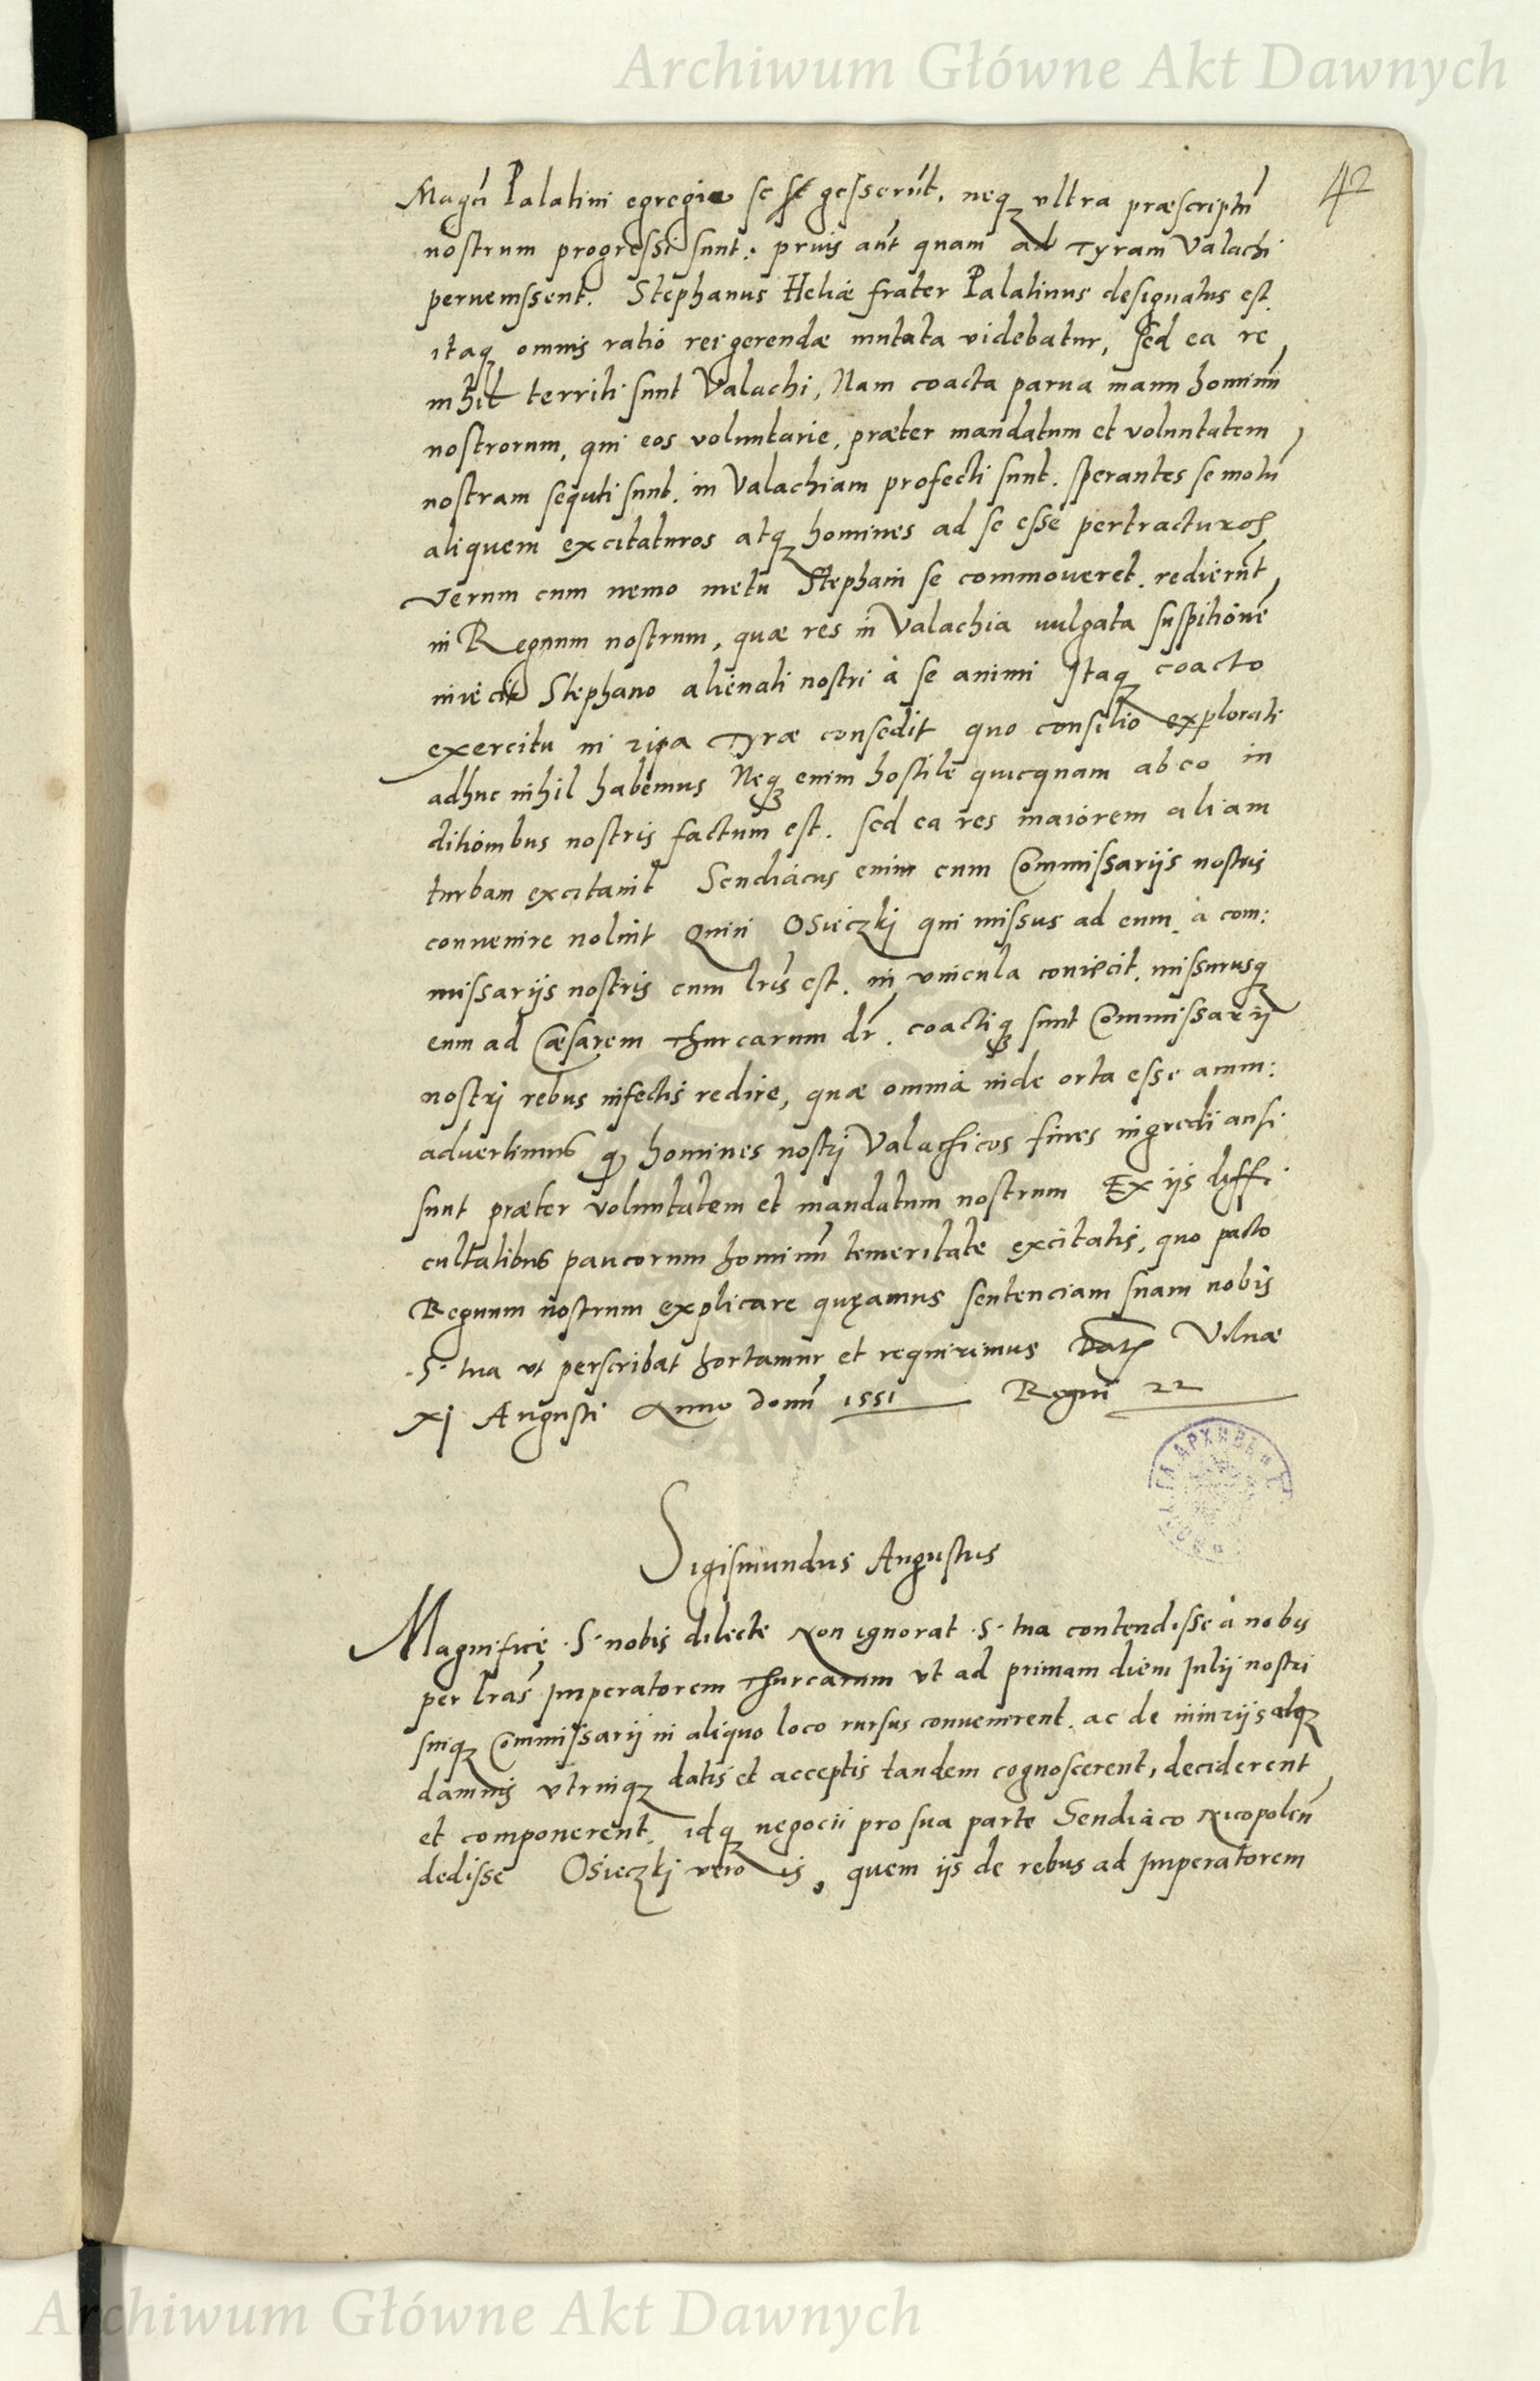 Archiwum Główne Akt Dawnych
42
Magcī Palatini egregie se gesserūt, neq ultra præscriptū
nostrum progressi sunt: prius aūt quam ad Tyram Valachi
pervenissent. Stephanus Heliæ frater Palatinus designatus est
itaq omnis ratio rei gerendæ mutata videbatur, sed ea re
nihil territi sunt Valachi, Nam coacta parva manu hominū
nostrorum, qui eos voluntarie, præter mandatum et voluntatem
nostram sequuti sunt. in Valachiam profecti sunt. sperantes se motū
aliquem excitaturos atq homines ad se esse pertracturos
Verum cum nemo metu Stephani se commoveret. redierūt
in Regnum nostrum, quæ res in Valachia vulgata suspitionē
iniecit Stephano alienati nostri à se animi Itaq coacto
exercitu in ripa Tyræ consedit quo consilio explorati
adhuc nihil habemus Neq enim hostile quicquam ab eo in
ditionibus nostris factum est. sed ea res maiorem aliam
turbam excitavit Sendiacus enim cum Commissariis nostris
convenire noluit Quin Osieczkj qui missus ad eum à com:
missariis nostris cum lrīs est. in vincula coniecit. missurusq
eum ad Cæsarem Thurcarum dr̄. coactiq sunt Commissarij
nostrj rebus infectis redire, quæ omnia inde orta esse anim:
advertimus q homines nostrj Valachicos fines ingredi ausi
sunt præter voluntatem et mandatum nostrum Ex iis diffi
cultatibus paucorum hominū temeritate excitatis, quo pacto
Regnum nostrum explicare quęamus sentenciam suam nobis
.S. tua ut perscribat hortamur et requirimus Dat Vilnæ
xj Augusti Anno domī 1551 Regni 22
Sigismundus Augustus
Magnificę .S. nobis dilecte Non ignorat .S. tua contendisse à nobis
per lrās Imperatorem Thurcarum ut ad primam diem Julij nostri
suiq Commissarij in aliquo loco rursus convenirent. ac de iniuriis atq
damnis utrinq datis et acceptis tandem cognoscerent, deciderent
et componerent. idq negocii pro sua parte Sendiaco Nicopoleń
dedisse Osieczkj vero is, quem iis de rebus ad Imperatorem
Archiwum Główne Akt Dawnych